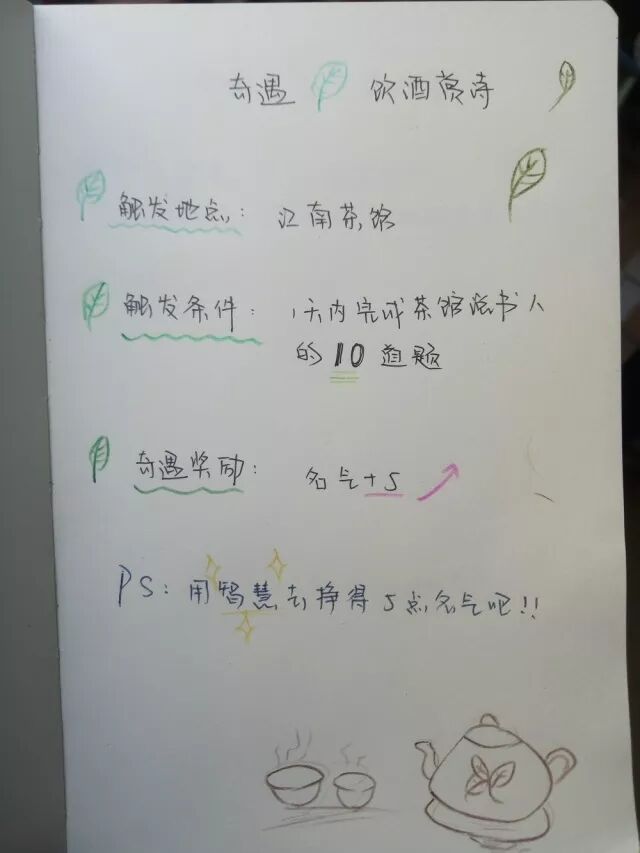 奇遇 饮酒赏诗
触发地点: 江南茶馆
触发条件: 1天内完成茶馆说书人
的10道题
奇遇奖励: 名气+5
PS: 用智慧去挣得5点名气吧!!